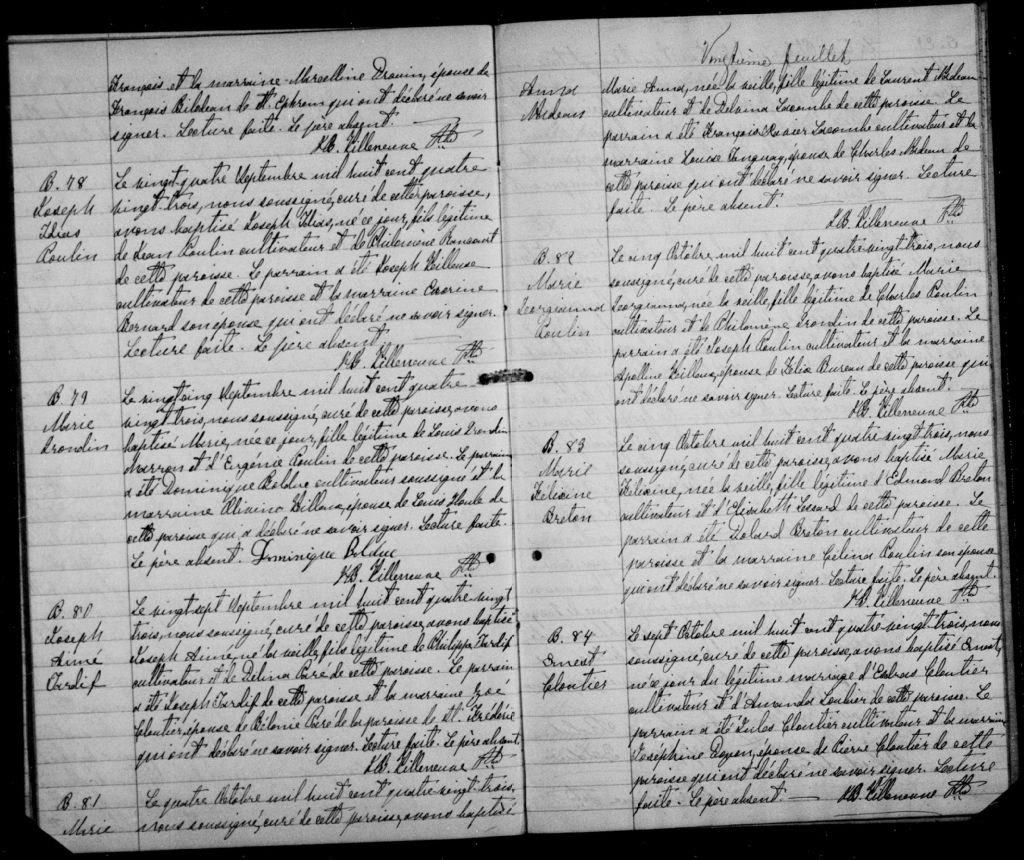 François et la marraine Marcelline Drouin, épouse de
François Bilodeau de St. Ephrem qui ont déclaré ne savoir
signer. Lecture faite. Le père absent.
J.B. Villeneuve Ptre
B. 78
Joseph
Poulin
Le vingt-quatre Septembre mil huit cent quatre
vingt-trois, nous soussigné, curé de cette paroisse,
avons baptisé Joseph né ce jour, fils légitime
de Jean Poulin cultivateur et de Philomène Rancourt
de cette paroisse. Le parrain a été Joseph
cultivateur de cette paroisse et la marraine
Bernard son épouse qui ont déclaré ne savoir signer.
Lecture faite. Le père absent
J.B. Villeneuve Ptre
B. 79
Marie
Grondin
Le vingt cinq Septembre mil huit cent quatre
vingt-trois, nous soussigné, curé de cette paroisse, avons
baptisé Marie, née ce jour, fille légitime de Louis Grondin
et d'Eugénie Poulin de cette paroisse. Le parrain
a été Dominique Bolduc cultivateur soussigné et la
marraine épouse de Louis de
cette paroisse qui a déclaré ne savoir signer. Lecture faite.
Le père absent. Dominique Bolduc
J.B. Villeneuve Ptre
B. 80
Joseph
Aimé
Tardif
Le vingt-sept Septembre mil huit cent quatre-vingt
trois, nous soussigné, curé de cette paroisse, avons baptisé
Joseph Aimé, né la veille, fils légitime de Philippe Tardif
cultivateur et de Delina Paré de cette paroisse. Le parrain
a été Joseph Tardif de cette paroisse et la marraine Zoé
Cloutier, épouse de Bélonie Paré de la paroisse de St. Frédéric
qui ont déclaré ne savoir signer. Lecture faite. Le père absent.
J.B. Villeneuve Ptre
B. 81
Marie
Le quatre Octobre mil huit cent quatre vingt-trois,
nous soussigné, curé de cette paroisse, avons baptisé
feuillet
Anna
Marie Anna, née la veille, fille légitime de Laurent
cultivateur et de Delvina Lacombe de cette paroisse. Le
parrain a été François Xavier Lacombe cultivateur et la
marraine Louise Tanguay, épouse de Charles de
cette paroisse qui ont déclaré ne savoir signer. Lecture
faite. Le père absent.
J.B. Villeneuve Ptre
B. 82
Marie
Georgianna
Poulin
Le cinq Octobre, mil huit cent quatre-vingt-trois, nous
soussigné, curé de cette paroisse, avons baptisé Marie
Georgianna, née la veille, fille légitime de Charles Poulin
cultivateur et de Philomène Grondin de cette paroisse. Le
parrain a été Joseph Poulin cultivateur et la marraine
Apolline épouse de Félix Bureau de cette paroisse qui
ont déclaré ne savoir signer. Lecture faite. Le père absent.
J.B. Villeneuve Ptre
B. 83
Marie
Félixine
Breton
Le cinq Octobre, mil huit cent quatre vingt-trois, nous
soussigné, curé de cette paroisse, avons baptisé Marie
Félixine, née la veille, fille légitime d'Edmond Breton
cultivateur et d'Elisabeth Lessard de cette paroisse. Le
parrain a été Dolard Breton cultivateur de cette
paroisse et la marraine Célina Poulin son épouse
qui ont déclaré ne savoir signer. Lecture faite. Le père absent.
J.B. Villeneuve Ptre
B. 84
Ernest
Cloutier
Le sept Octobre mil huit cent quatre vingt-trois, nous
soussigné, curé de cette paroisse, avons baptisé Ernest,
né ce jour du légitime mariage d'Esdras Cloutier
cultivateur et d'Amanda de cette paroisse. Le
parrain a été Jules Cloutier cultivateur et la marraine
Joséphine Doyon, épouse de Pierre Cloutier de cette
paroisse qui ont déclaré ne savoir signer. Lecture
faite. Le père absent. J.B. Villeneuve Ptre